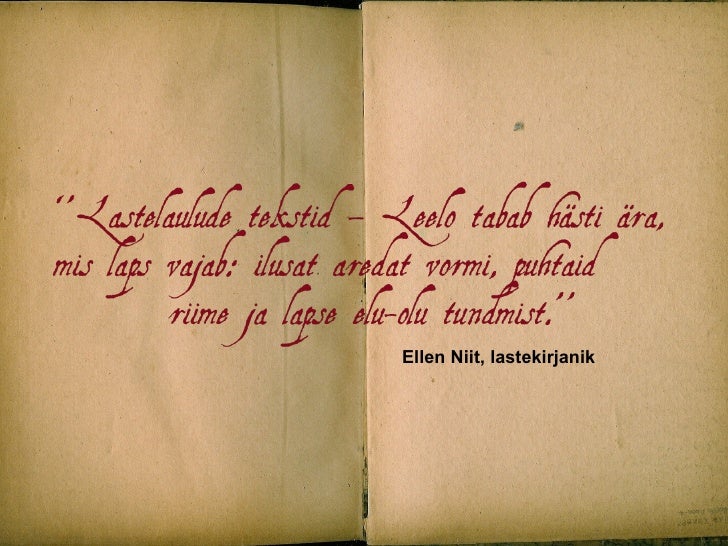 “Lastelaulude tekstid – Leelo tabab hästi ära,
mis laps vajab: ilusat aredat vormi, puhtaid
riime ja lapse elu-olu tundmist.”
Ellen Niit, lastekirjanik